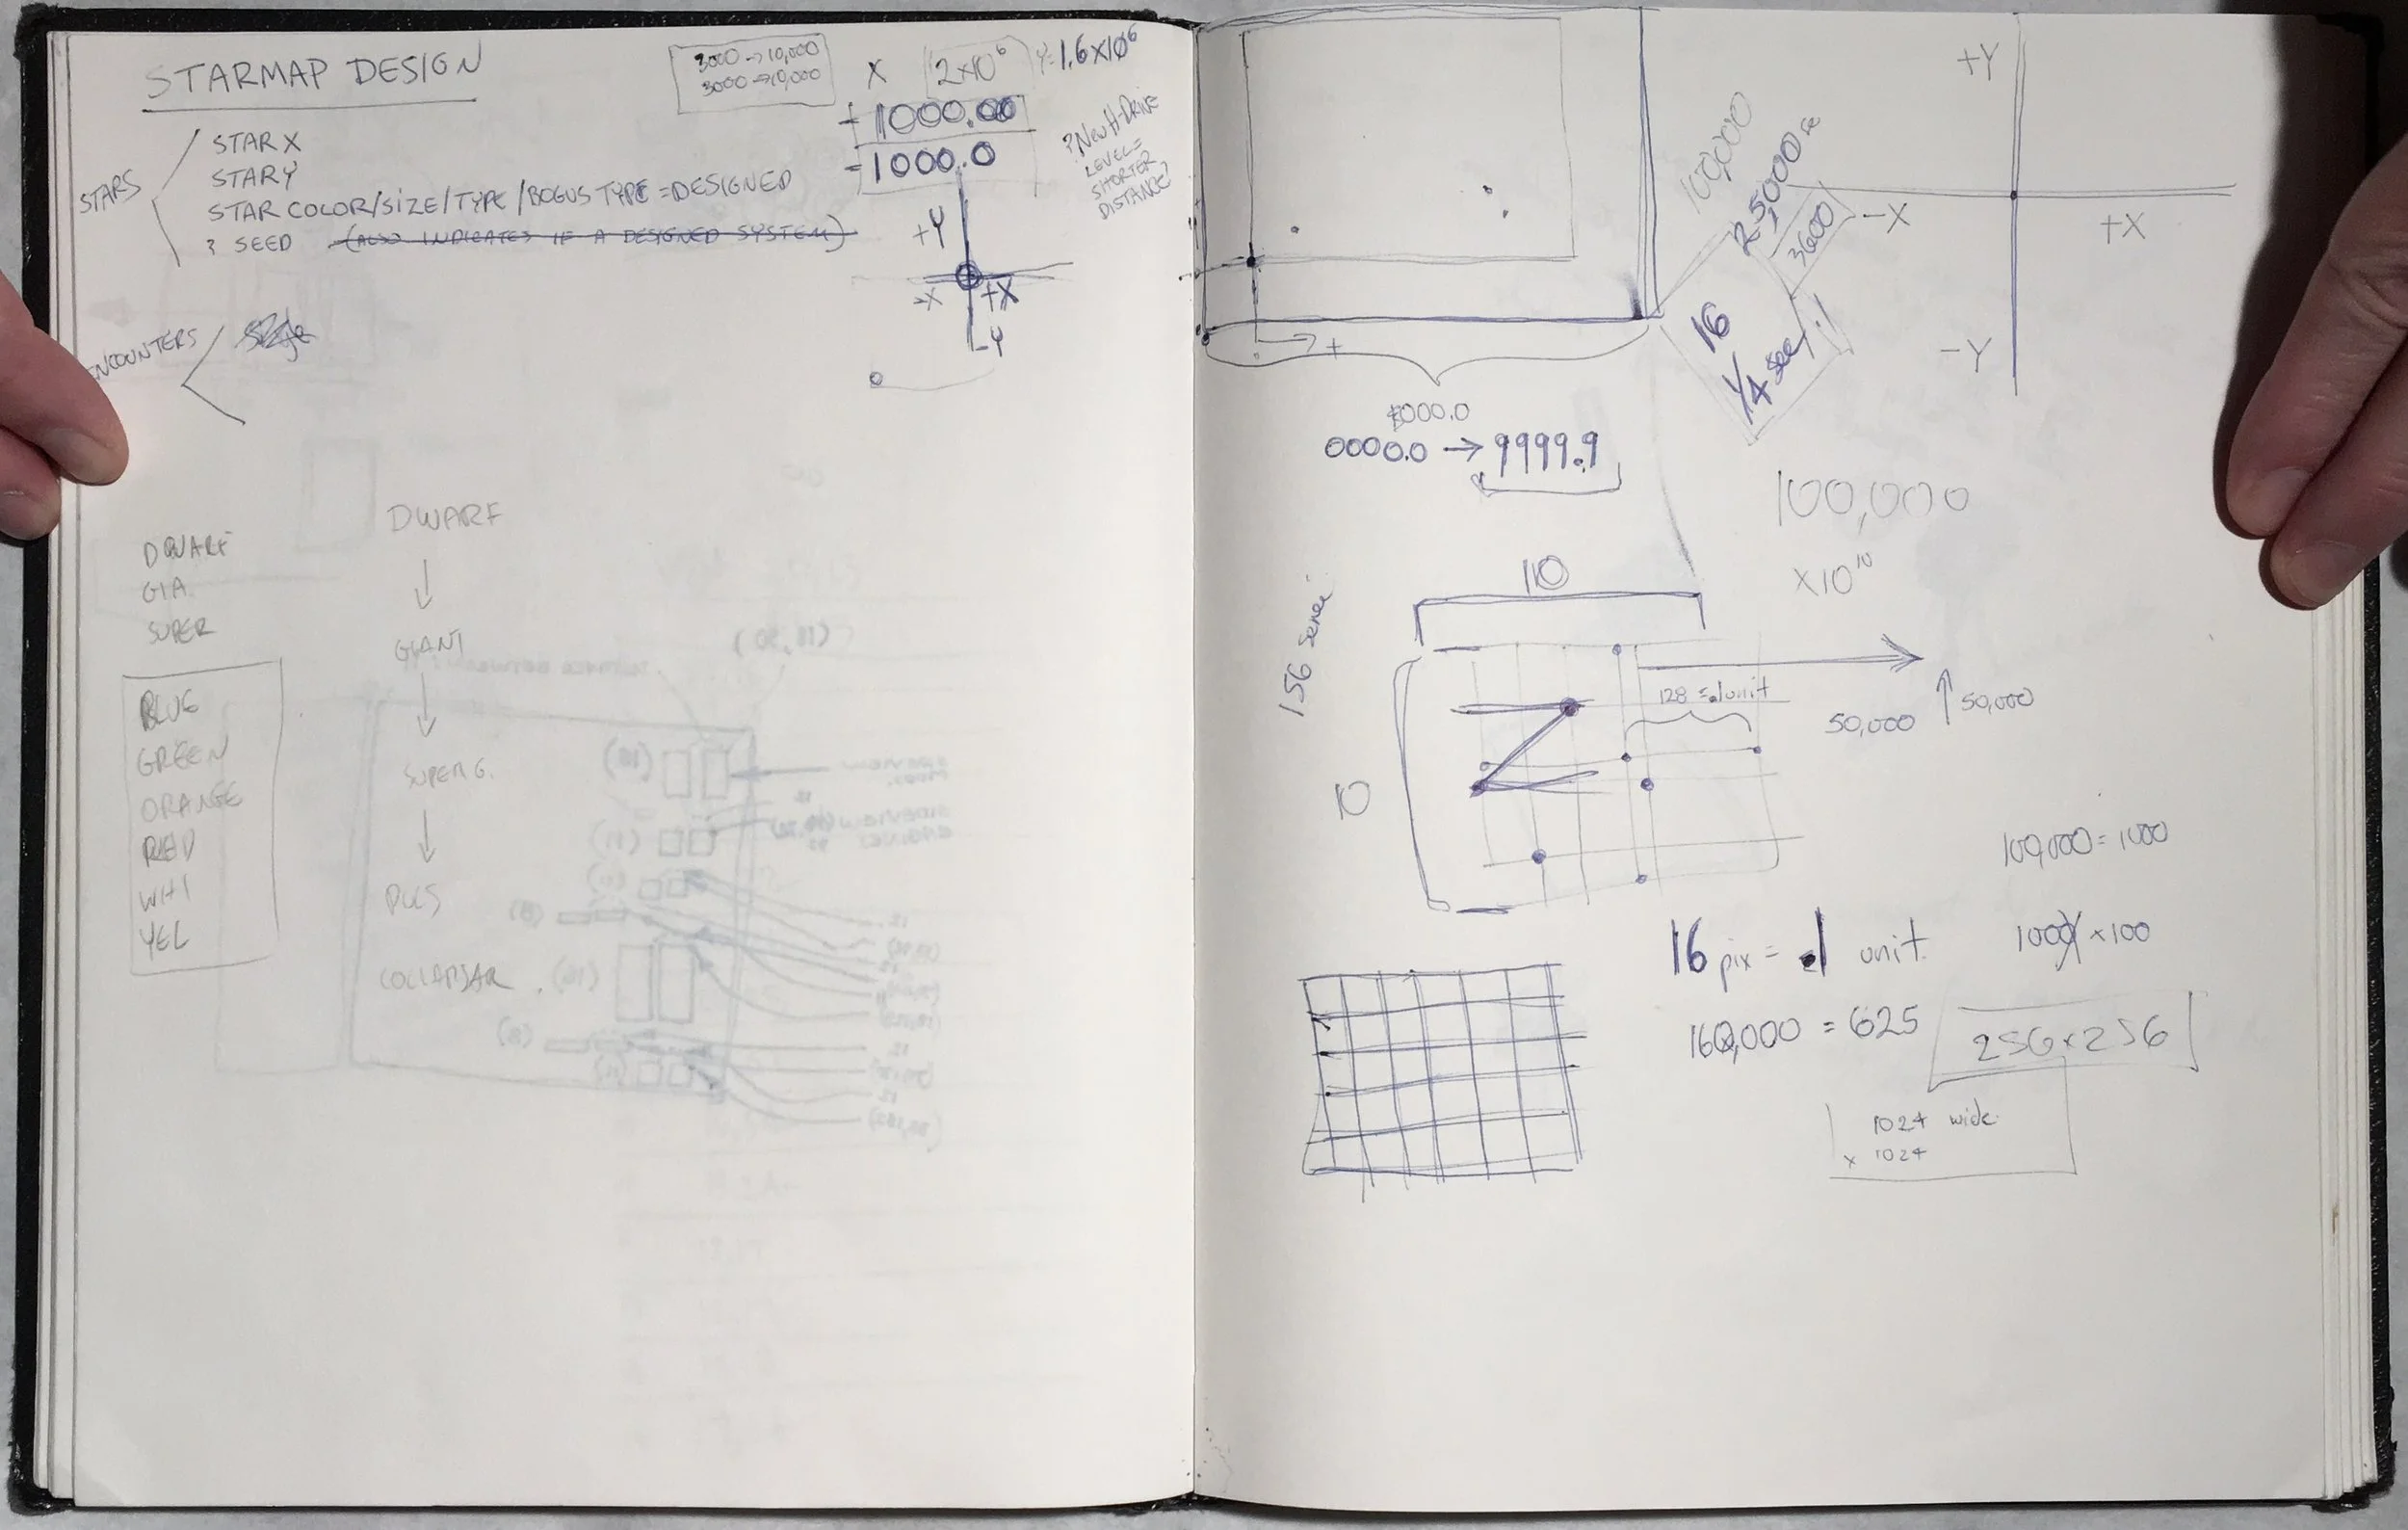 STARMAP DESIGN
3000 → 10,000
3000 → 10,000
X 2×10⁶ Y= 1.6×10⁶
1000.00
-1000.0
? New H-Drive
LEVEL =
SHORTER
DISTANCE?
STARS
STAR X
STAR Y
STAR COLOR/SIZE/TYPE/BOGUS TYPE = DESIGNED
? SEED (ALSO INDICATES IF A DESIGNED SYSTEM)
+Y
-X +X
-Y
ENCOUNTERS
DWARF
GIA
SUPER
BLUE
GREEN
ORANGE
RED
WHI
YEL
DWARF
↓
GIANT
↓
SUPER G.
↓
PULS
COLLAPSAR
+
100,000
25000 se
3600
16
1/4 sec
+Y
-X +X
-Y
000.0
0000.0 → 9999.9
100,000
×10¹⁰
156
110
10
128 = .1 unit
50,000 ↑ 50,000
100,000 = 1000
1000 × 100
16 pix = .1 unit
160,000 = 625
256 × 256
1024 wide
× 1024